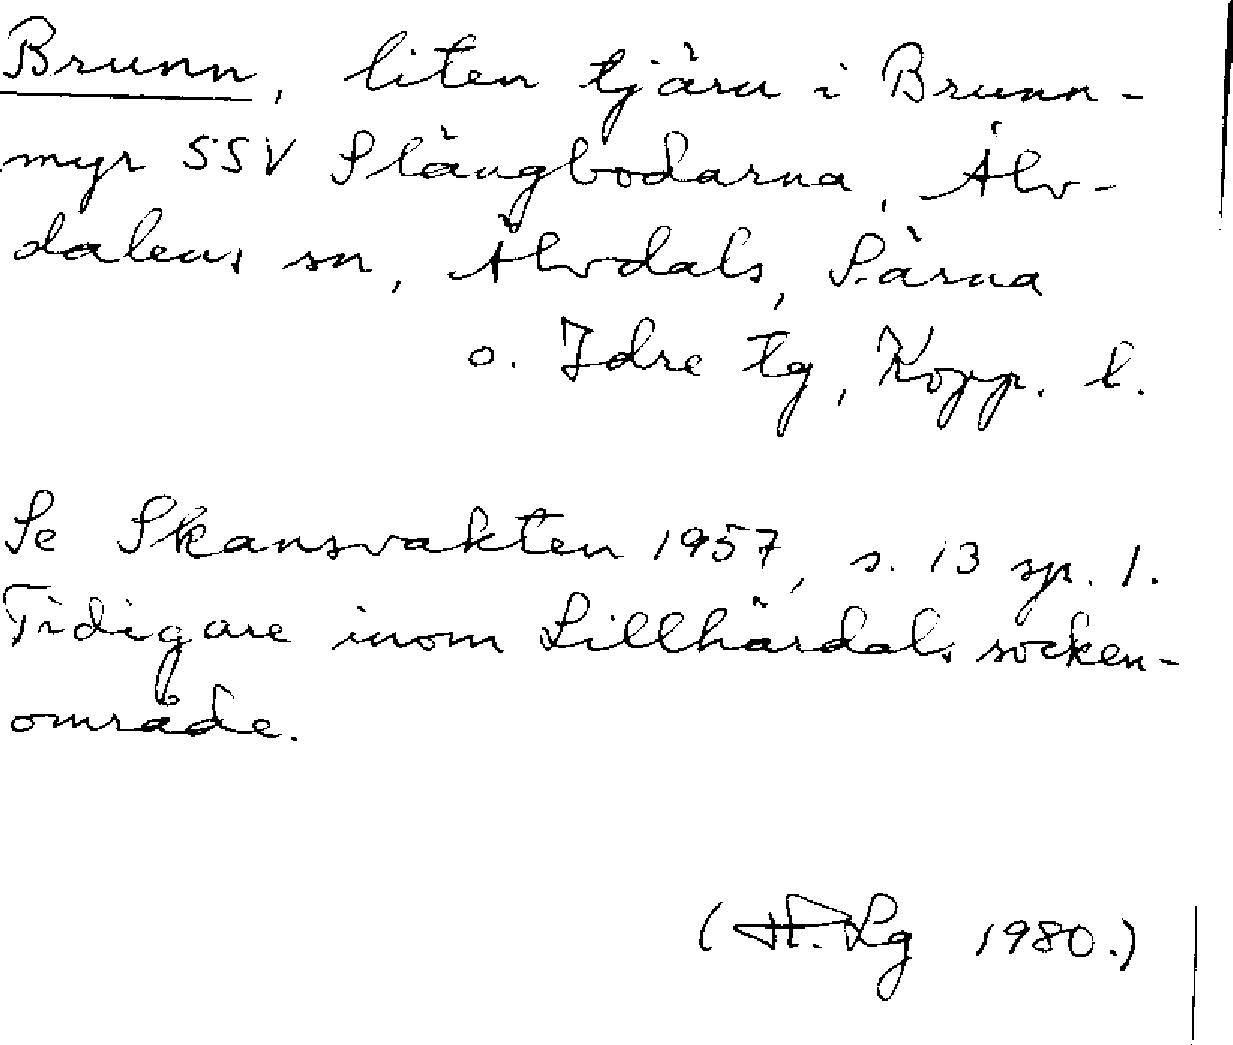 Brunn, liten tjärn i Brunn-
myr SSV Slängbodarna, Älv-
dalens sn, Älvdals, Särna
o. Idre tg, Kopp. l.
Se Skansvakten 1957, s. 13 sp. 1.
Tidigare inom Lillhärdals socken-
område.
(H. Lg 1980.)